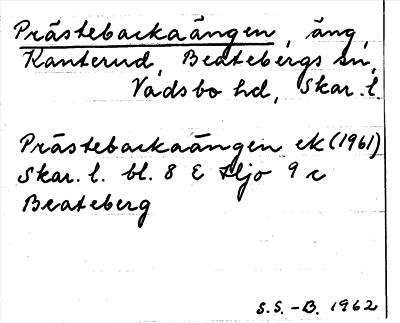 Prästebackaängen, äng,
Kanterud, Beatebergs sn,
Vadsbo hd, Skar. l.
Prästebackaängen ek (1961)
Skar. l. bl. 8 E Hjo 9 c
Beateberg
S.S.-B. 1962